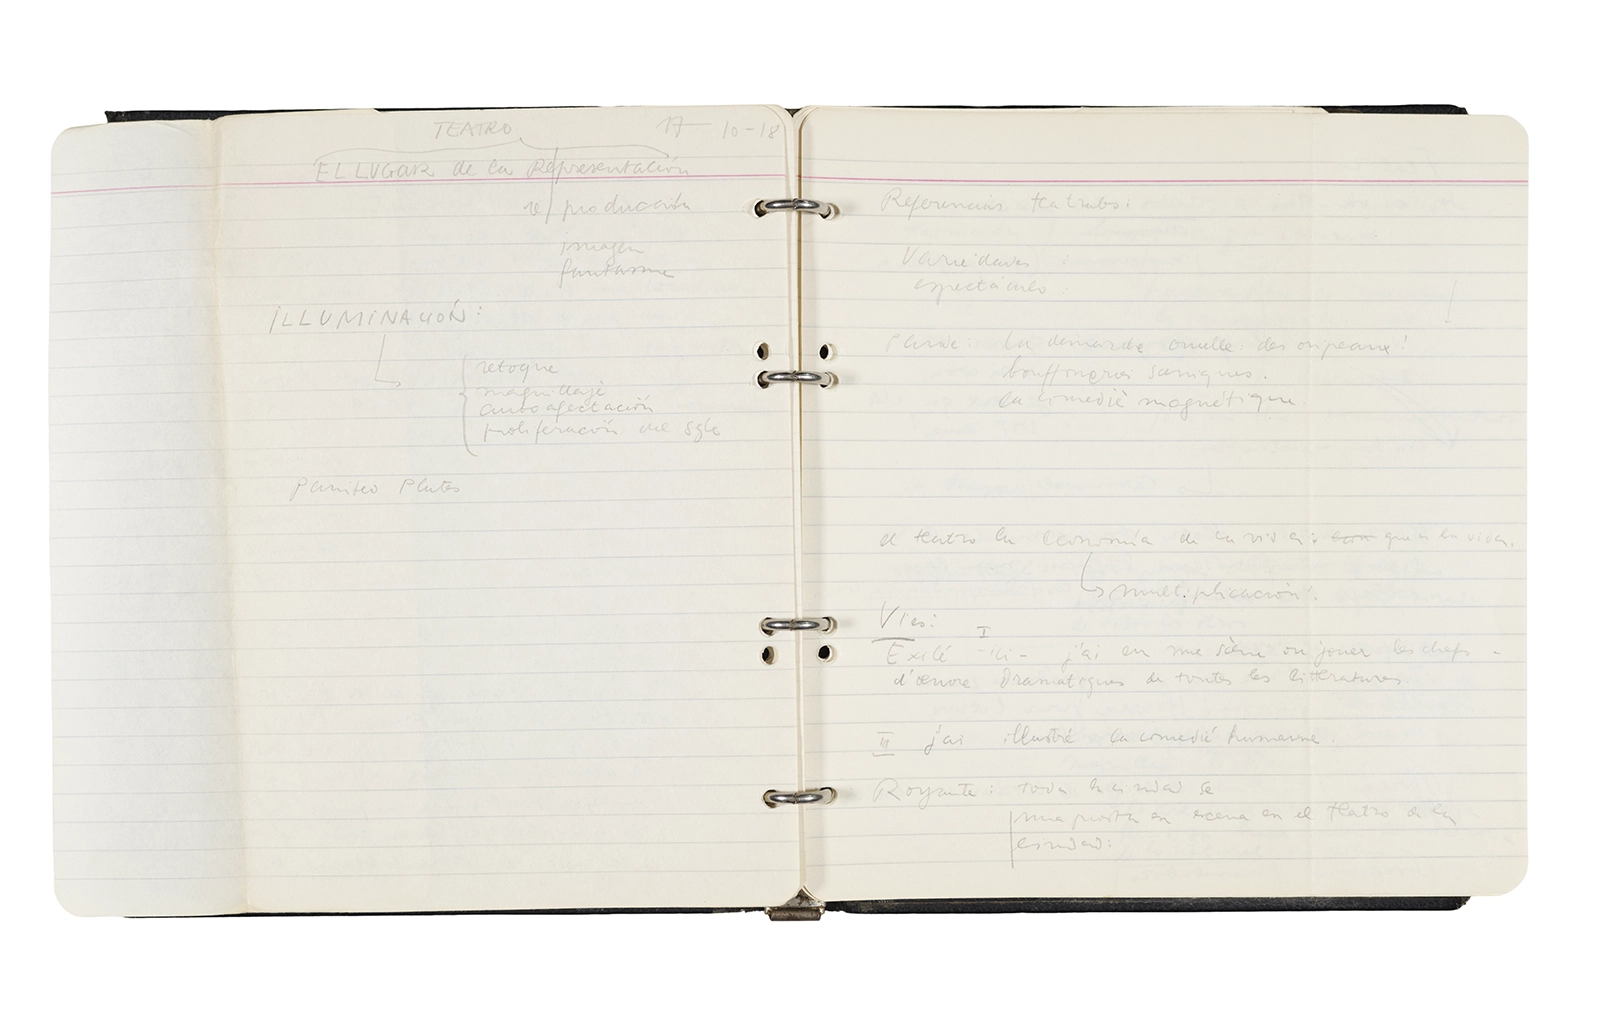 TEATRO 17 10-18
EL LUGAR de la Representación
re/producción
imagen
fantasme
ILLUMINACIÓN:
retoque
maquillaje
autoafectación
proliferación del
Referencias teatrales:
Variedades :
espectáculo :
Parade: la cruelle des oripeaux!
la comedie magnétique.
el teatro la economía de la vida: que es la vida.
multiplicación:
Vies:
I
Exilé ici - j'ai eu une scène où jouer les chefs-
d'œuvre Dramatiques de toutes les litteratures.
III j'ai illustré la comedié humaine.
toda la ciudad se
una puesta en escena en el teatro de la
ciudad: